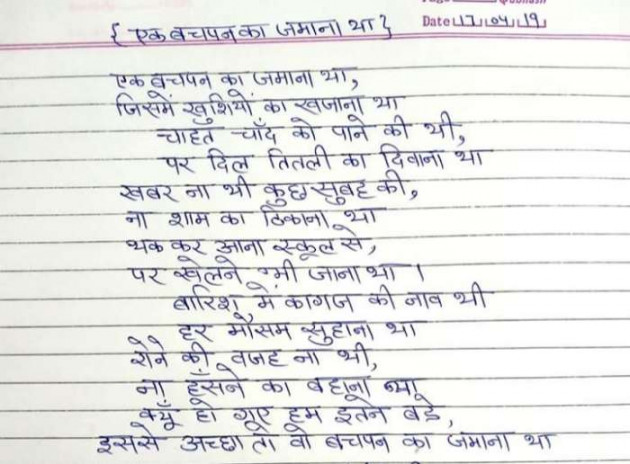 Date 17.04.19
{ एक बचपन का जमाना था }
एक बचपन का जमाना था,
जिसमें खुशियों का खजाना था
चाहत चाँद को पाने की थी,
पर दिल तितली का दिवाना था
खबर ना थी कुछ सुबह की,
ना शाम का ठिकाना था
थक कर आना स्कूल से,
पर खेलने भी जाना था ।
बारिश में कागज की नाव थी
हर मौसम सुहाना था
रोने की वजह ना थी,
ना हँसने का बहाना था
क्यूँ हो गए हम इतने बडे,
इससे अच्छा तो वो बचपन का जमाना था